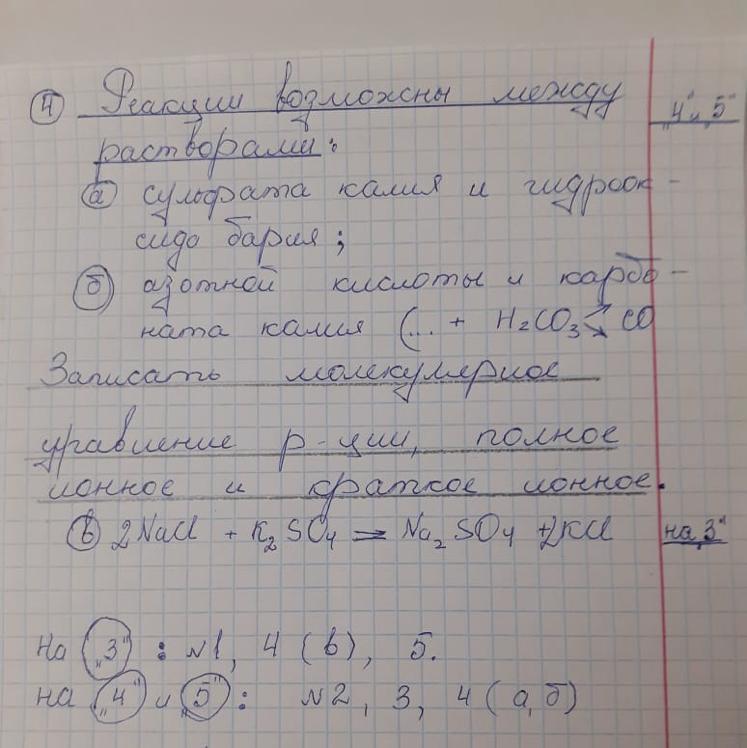 ④ Реакции возможны между „4" и „5"
растворами:
ⓐ сульфата калия и гидроок-
сида бария;
ⓑ азотной кислоты и карбо-
ната калия (... + H₂CO₃ CO
Записать молекулярное
уравнение р-ции, полное
ионное и краткое ионное.
ⓑ 2NaCl + K₂SO₄ = Na₂SO₄ + 2KCl на „3"
На „3" : №1, 4 (в), 5.
на „4" и „5" : №2, 3, 4 (а, б)